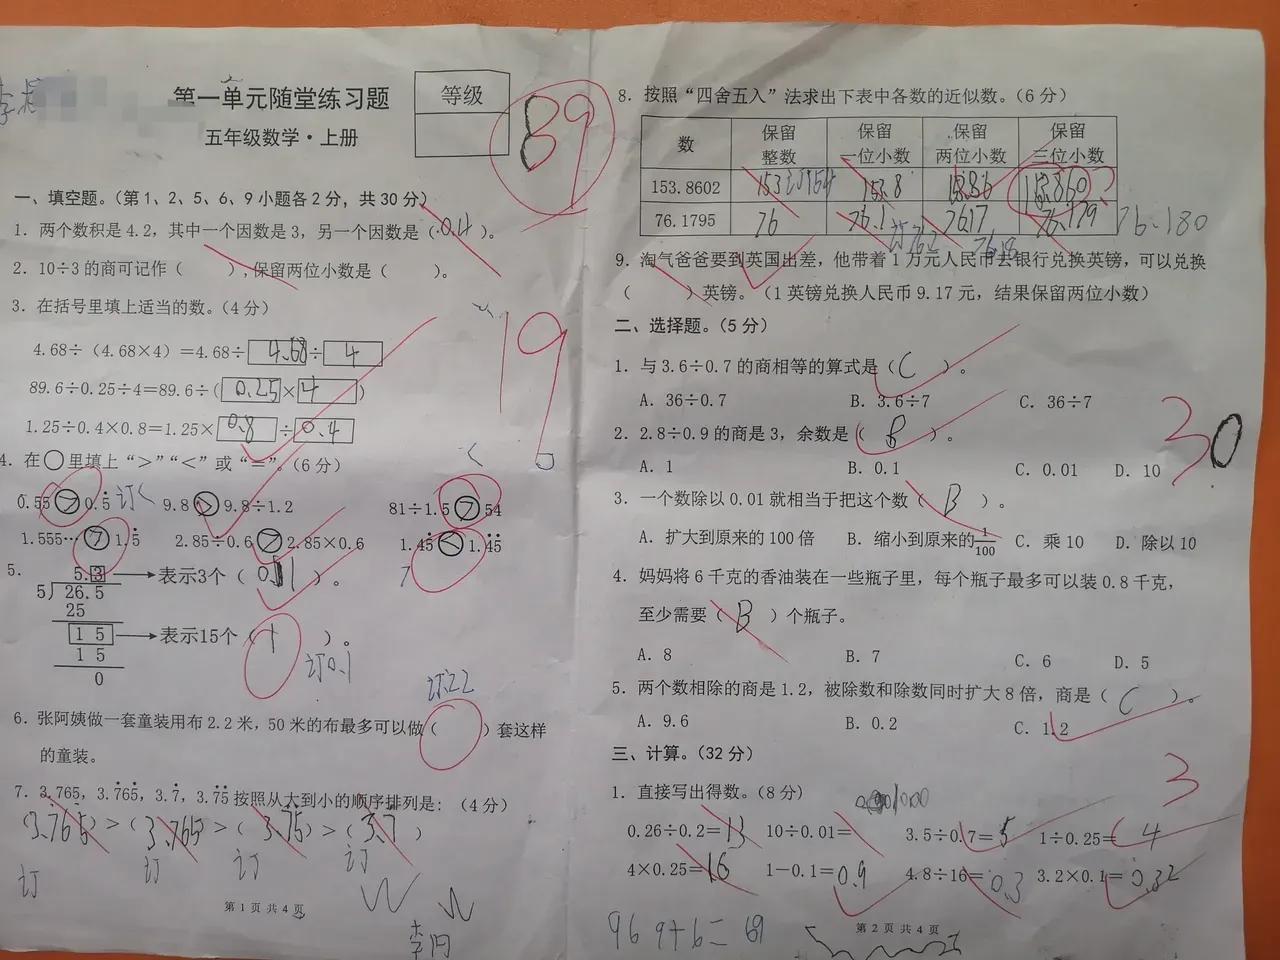 第一单元随堂练习题
五年级数学·上册
等级
89
一、填空题。（第1、2、5、6、9小题各2分，共30分）
1. 两个数积是4.2，其中一个因数是3，另一个因数是（0.4）。
2. 10÷3的商可记作（　　），保留两位小数是（　　）。
3. 在括号里填上适当的数。（4分）
4.68÷（4.68×4）=4.68÷4.68÷4
89.6÷0.25÷4=89.6÷（0.25×4）
1.25÷0.4×0.8=1.25×0.8÷0.4
19
4. 在○里填上“>”“<”或“=”。（6分）
0.55>0.5̇ 订< 9.8>9.8÷1.2 81÷1.5>54
1.555…>1.5̇ 2.85÷0.6>2.85×0.6 1.45̇<1.4̇5̇
5. 5.3→表示3个（0.1）。
5)26.5
25
15→表示15个（1　　）。
订0.1
15
0
订22
6. 张阿姨做一套童装用布2.2米，50米的布最多可以做（　　）套这样
的童装。
7. 3.765，3.7̇65̇，3.7̇，3.7̇5̇按照从大到小的顺序排列是：（4分）
订 订 订 订
第1页共4页
8. 按照“四舍五入”法求出下表中各数的近似数。（6分）
数 保留整数 保留一位小数 保留两位小数 保留三位小数
153.8602 153 订154 153.8 153.86 153.860
76.1795 76 76.1 订76.2 76.17 76.18 76.179 76.180
9. 淘气爸爸要到英国出差，他带着1万元人民币去银行兑换英镑，可以兑换
（　　）英镑。（1英镑兑换人民币9.17元，结果保留两位小数）
二、选择题。（5分）
1. 与3.6÷0.7的商相等的算式是（C）。
A. 36÷0.7 B. 3.6÷7 C. 36÷7
30
2. 2.8÷0.9的商是3，余数是（B）。
A. 1 B. 0.1 C. 0.01 D. 10
3. 一个数除以0.01就相当于把这个数（B）。
A. 扩大到原来的100倍 B. 缩小到原来的1/100 C. 乘10 D. 除以10
4. 妈妈将6千克的香油装在一些瓶子里，每个瓶子最多可以装0.8千克，
至少需要（B）个瓶子。
A. 8 B. 7 C. 6 D. 5
5. 两个数相除的商是1.2，被除数和除数同时扩大8倍，商是（C）。
A. 9.6 B. 0.2 C. 1.2
三、计算。（32分）
3
1. 直接写出得数。（8分）
0.26÷0.2=13 10÷0.01= 3.5÷0.7=5 1÷0.25=4
4×0.25=16 1-0.1=0.9 4.8÷16=0.3 3.2×0.1=0.32
第2页共4页